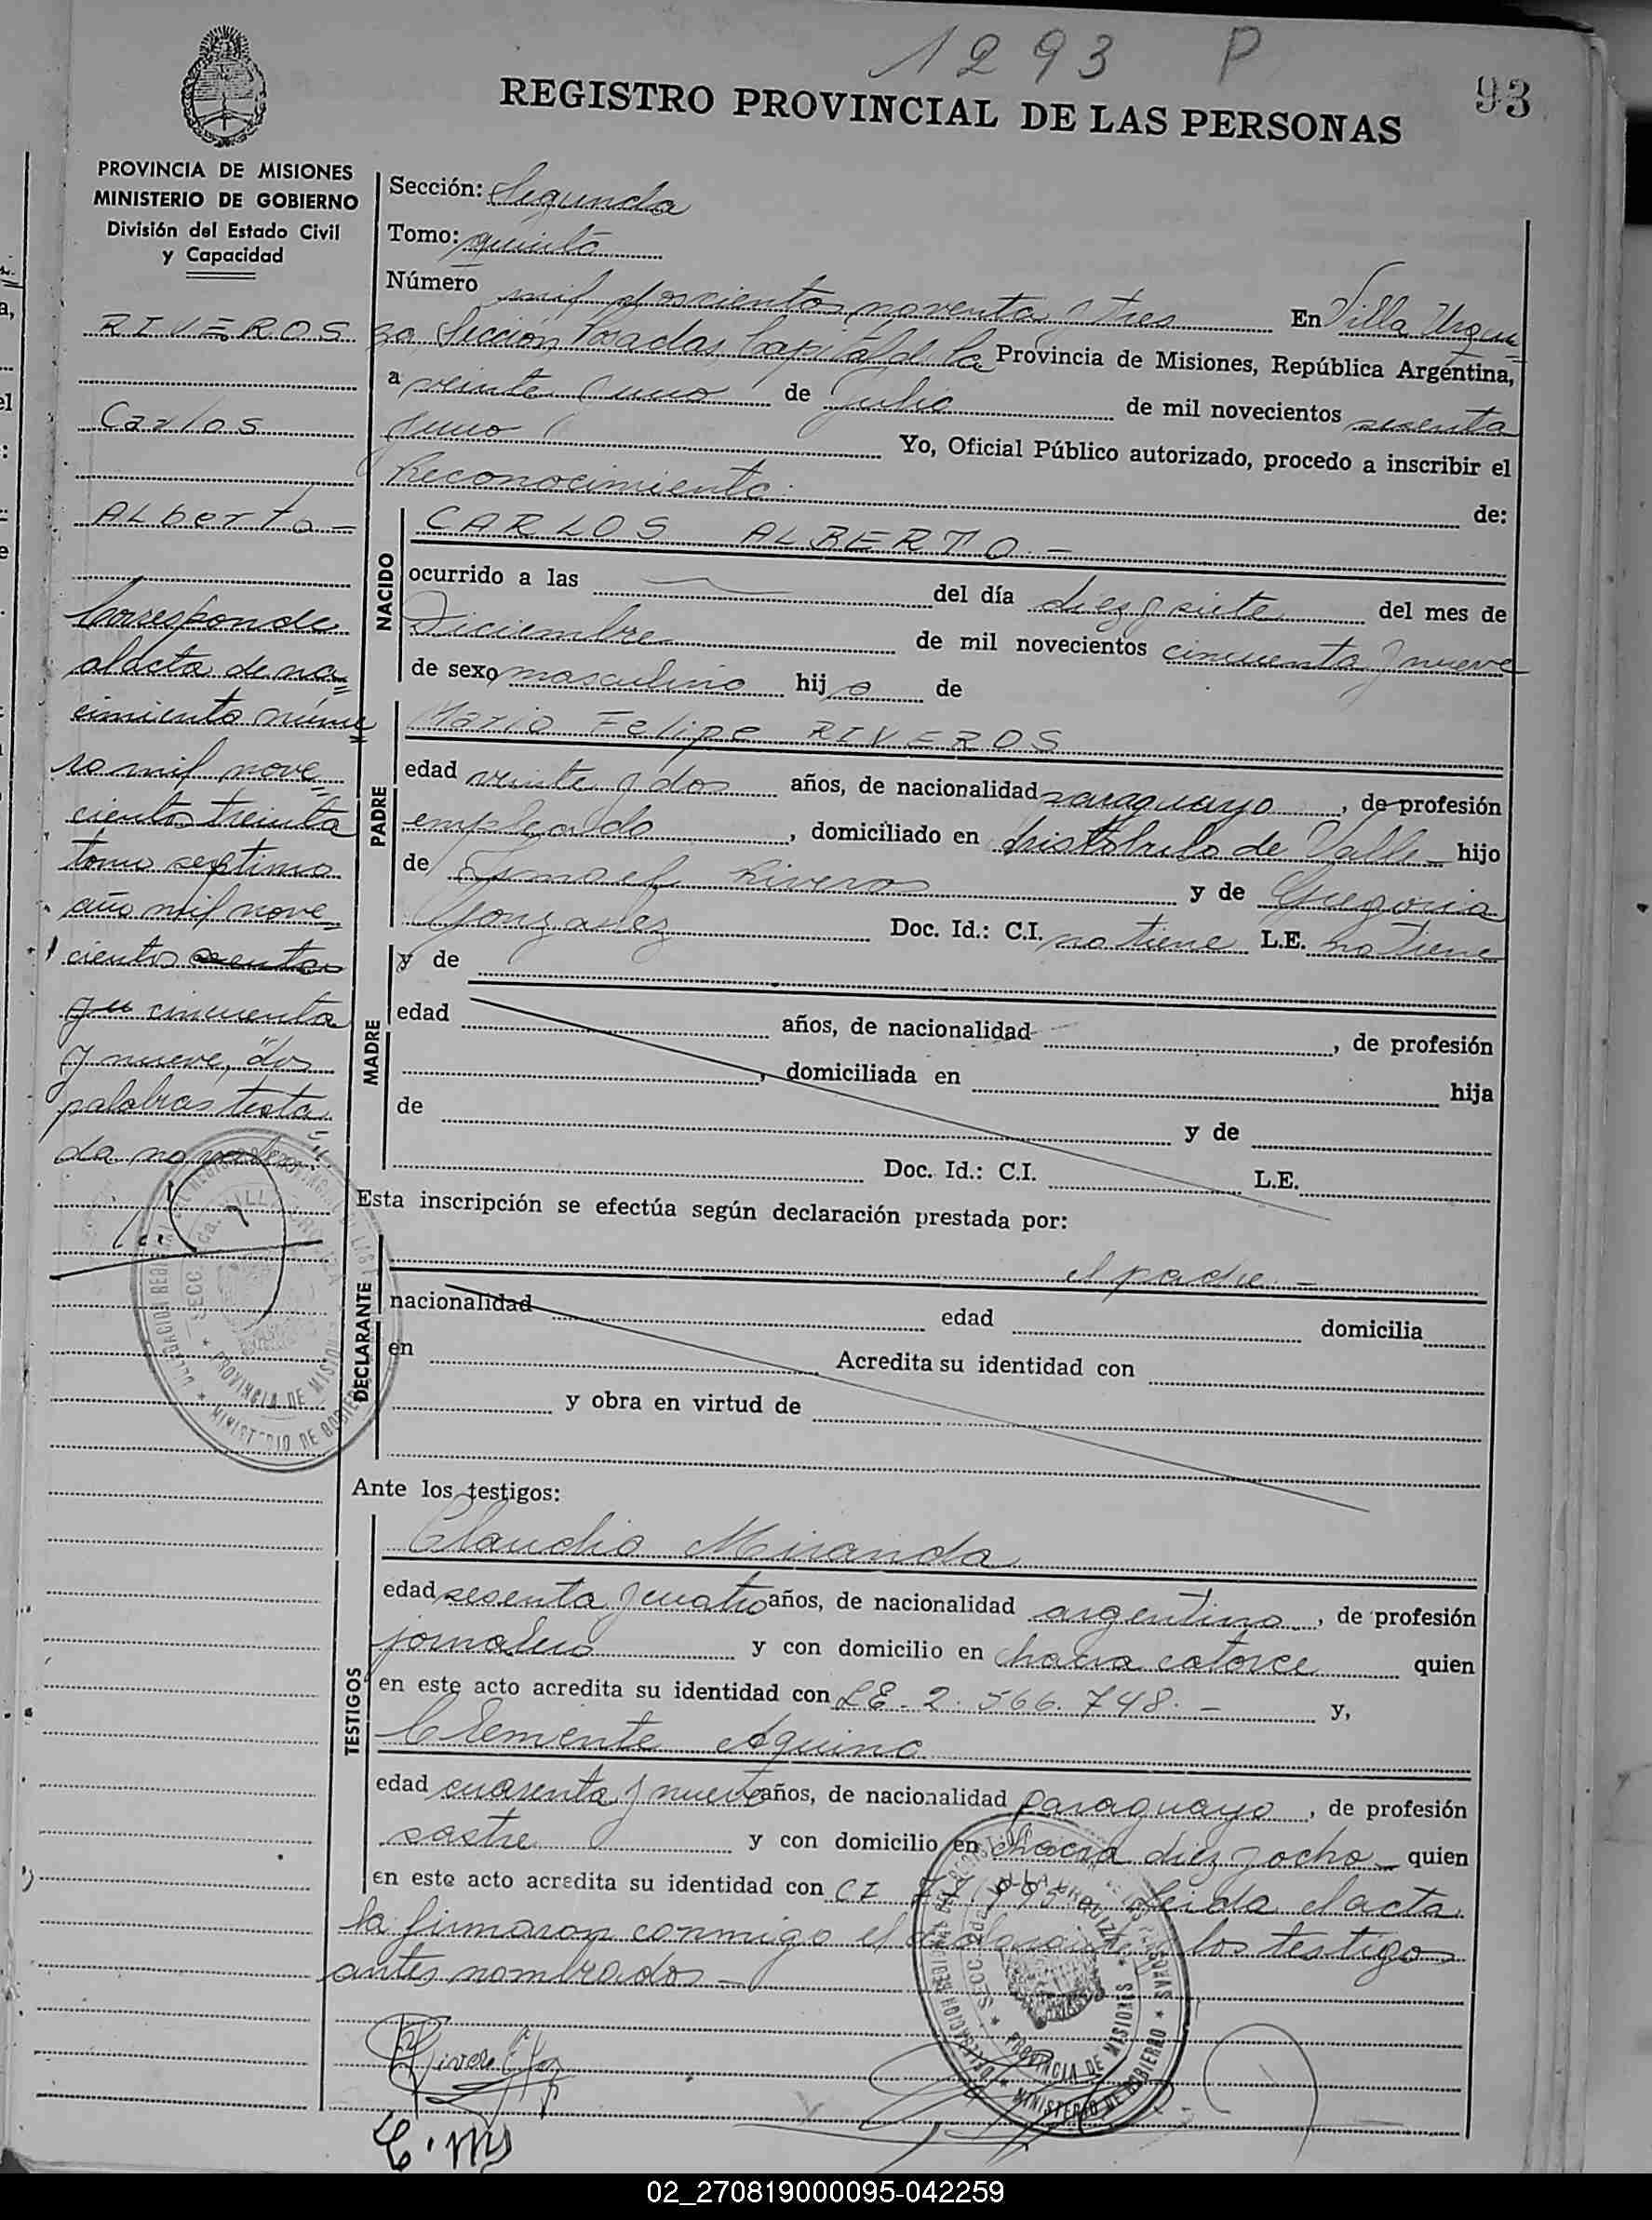 1293 P
93
REGISTRO PROVINCIAL DE LAS PERSONAS
PROVINCIA DE MISIONES
MINISTERIO DE GOBIERNO
División del Estado Civil
y Capacidad
RIVEROS
Carlos
Alberto -
Corresponde
al acta de na=
cimiento núme
ro mil nove=
cientos treinta
tomo septimo
año mil nove=
cientos sesenta
y u cincuenta
y nueve, dos
palabras testa=
da no valen
Sección: Segunda
Tomo: quinto
Número mil doscientos noventa y tres En Villa Urqui=
za Sección, Posadas, Capital de la Provincia de Misiones, República Argentina,
a veinte y uno de Julio de mil novecientos sesenta
y uno Yo, Oficial Público autorizado, procedo a inscribir el
Reconocimiento de:
NACIDO
CARLOS ALBERTO. -
ocurrido a las del día diez y siete del mes de
Diciembre de mil novecientos cincuenta y nueve
de sexo masculino hijo de
PADRE
Mario Felipe RIVEROS
edad veinte y dos años, de nacionalidad paraguayo, de profesión
empleado, domiciliado en Aristóbulo de Valle - hijo
de Ismael Riveros y de Gregoria
Gonzalez Doc. Id.: C.I. no tiene L.E. no tiene
MADRE
y de
edad años, de nacionalidad , de profesión
, domiciliada en hija
de y de
Doc. Id.: C.I. L.E.
Esta inscripción se efectúa según declaración prestada por:
DECLARANTE
el padre -
nacionalidad edad domicilia
en Acredita su identidad con
y obra en virtud de
Ante los testigos:
TESTIGOS
Claudio Miranda
edad sesenta y cuatro años, de nacionalidad argentino, de profesión
jornalero y con domicilio en chacra catorce quien
en este acto acredita su identidad con LE. 2.566.748. - y,
Clemente Aquino
edad cuarenta y nueve años, de nacionalidad paraguayo, de profesión
sastre y con domicilio en chacra diez y ocho - quien
en este acto acredita su identidad con CI Leida el acta
la firmaron conmigo el declarante y los testigos
antes nombrados -
PROVINCIA DE MISIONES
MINISTERIO DE GOBIERNO
C. M
02_270819000095-042259